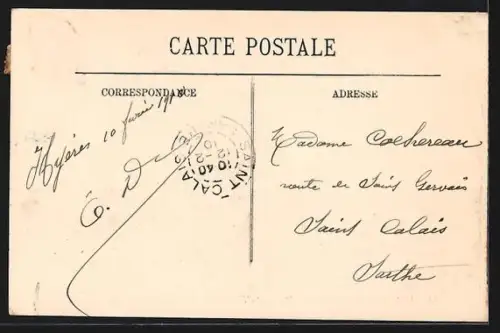 CARTE POSTALE
CORRESPONDANCE
ADRESSE
Hyères 10 février
SAINT CALAIS
Madame Cochereau
route de Saint Gervais
Saint Calais
Sarthe